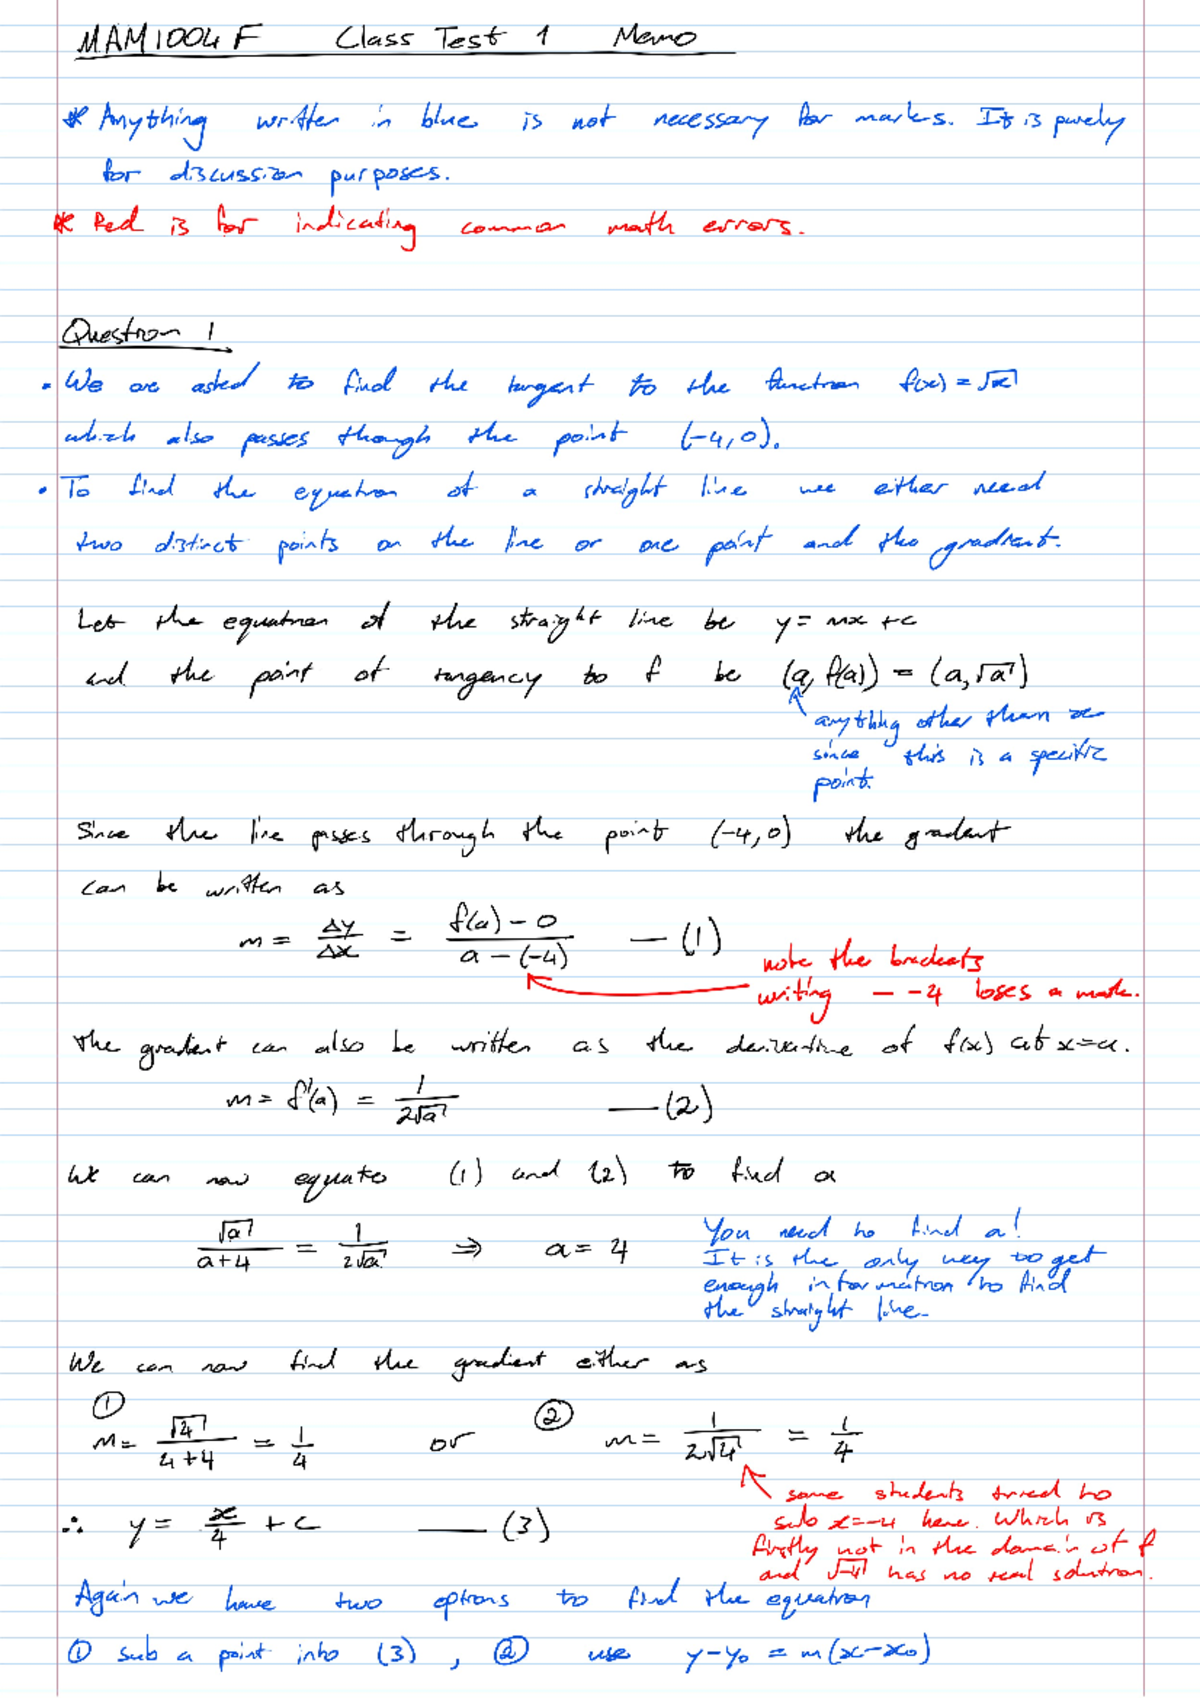 MAM1004F Class Test 1 Memo
* Anything written in blue is not necessary for marks. It is purely
for discussion purposes.
* Red is for indicating common math errors.
Question 1
• We are asked to find the tangent to the function f(x) = √x
which also passes though the point (-4,0).
• To find the equation of a straight line we either need
two distinct points on the line or one point and the gradient.
Let the equation of the straight line be y = mx + c
and the point of tangency to f be (a, f(a)) = (a, √a)
anything other than x
since this is a specific
point.
Since the line passes through the point (-4,0) the gradient
can be written as
m = Δy/Δx = (f(a) - 0)/(a - (-4)) — (1)
note the brackets
writing - -4 loses a mark.
The gradient can also be written as the derivative of f(x) at x=a.
m = f'(a) = 1/(2√a) — (2)
We can now equate (1) and (2) to find a
√a/(a+4) = 1/(2√a) ⇒ a = 4
You need to find a!
It is the only way to get
enough information to find
the straight line.
We can now find the gradient either as
① m = √4/(4+4) = 1/4 or ② m = 1/(2√4) = 1/4
some students tried to
sub x=-4 here. Which is
firstly not in the domain of f
and √-4 has no real solution.
∴ y = x/4 + c — (3)
Again we have two options to find the equation
① sub a point into (3), ② use y-y₀ = m(x-x₀)